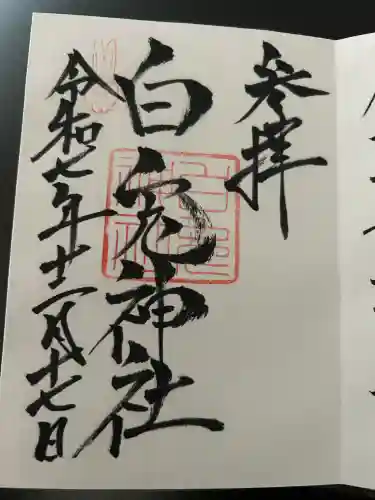 参拝
白兎神社
令和七年十二月十七日